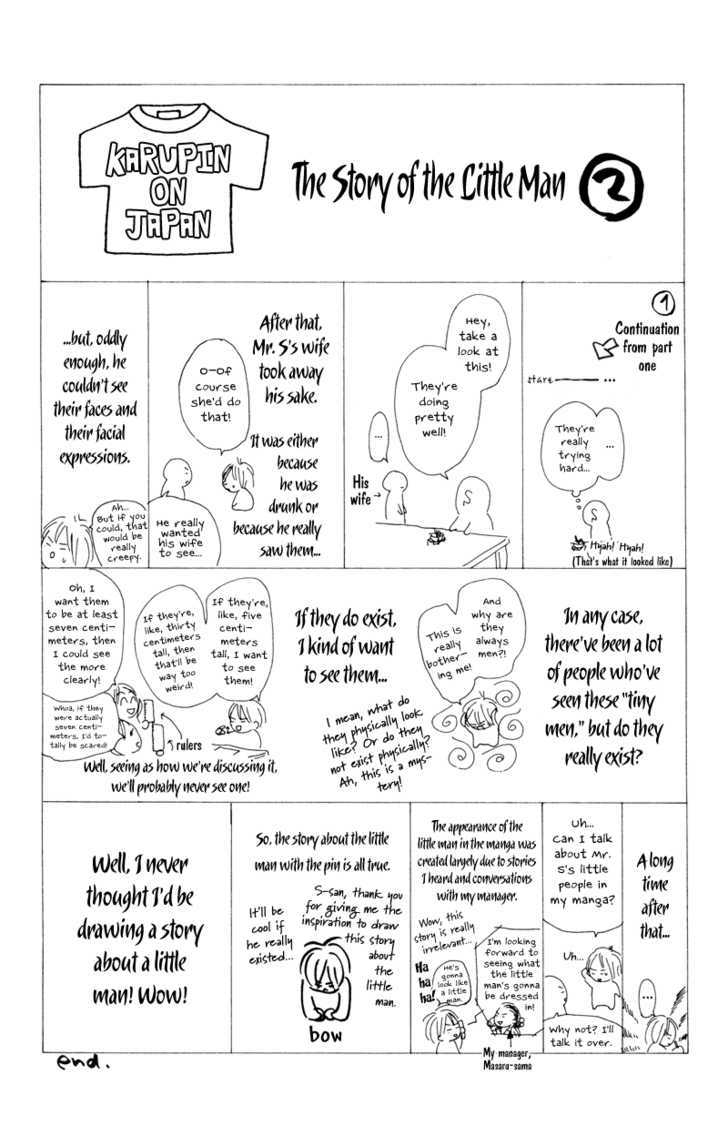 KARUPIN
ON
JAPAN
The Story of the Little Man 2
1
Continuation
from part
one
stare ...
...
They're
really
trying
hard...
Hyah! Hyah!
(That's what it looked like)
Hey,
take a
look at
this!
They're
doing
pretty
well!
...
His
wife
S
After that,
Mr. S's wife
took away
his sake.
It was either
because
he was
drunk or
because he really
saw them...
O-of
course
she'd do
that!
He really
wanted
his wife
to see...
...but, oddly
enough, he
couldn't see
their faces and
their facial
expressions.
Ah...
But if you
could, that
would be
really
creepy.
In any case,
there've been a lot
of people who've
seen these "tiny
men," but do they
really exist?
And
why are
they
always
men?!
This is
really
bother-
ing me!
I mean, what do
they physically look
like? Or do they
not exist physically?
Ah, this is a mys-
tery!
If they do exist,
I kind of want
to see them...
If they're,
like, five
centi-
meters
tall, I want
to see
them!
If they're,
like, thirty
centimeters
tall, then
that'll be
way too
weird!
Oh, I
want them
to be at least
seven centi-
meters, then
I could see
the more
clearly!
Whoa, if they
were actually
seven centi-
meters, I'd to-
tally be scared!
rulers
Well, seeing as how we're discussing it,
we'll probably never see one!
A long
time
after
that...
...
Uh...
can I talk
about Mr.
S's little
people in
my manga?
Uh...
Why not? I'll
talk it over.
The appearance of the
little man in the manga was
created largely due to stories
I heard and conversations
with my manager.
Wow, this
story is really
irrelevant...
I'm looking
forward to
seeing what
the little
man's gonna
be dressed
in!
He's
gonna
look like
a little
man.
Ha
ha
ha!
My manager,
Masaru-sama
So, the story about the little
man with the pin is all true.
S-san, thank you
for giving me the
inspiration to draw
this story
about
the
little
man.
It'll be
cool if
he really
existed...
bow
Well, I never
thought I'd be
drawing a story
about a little
man! Wow!
end.